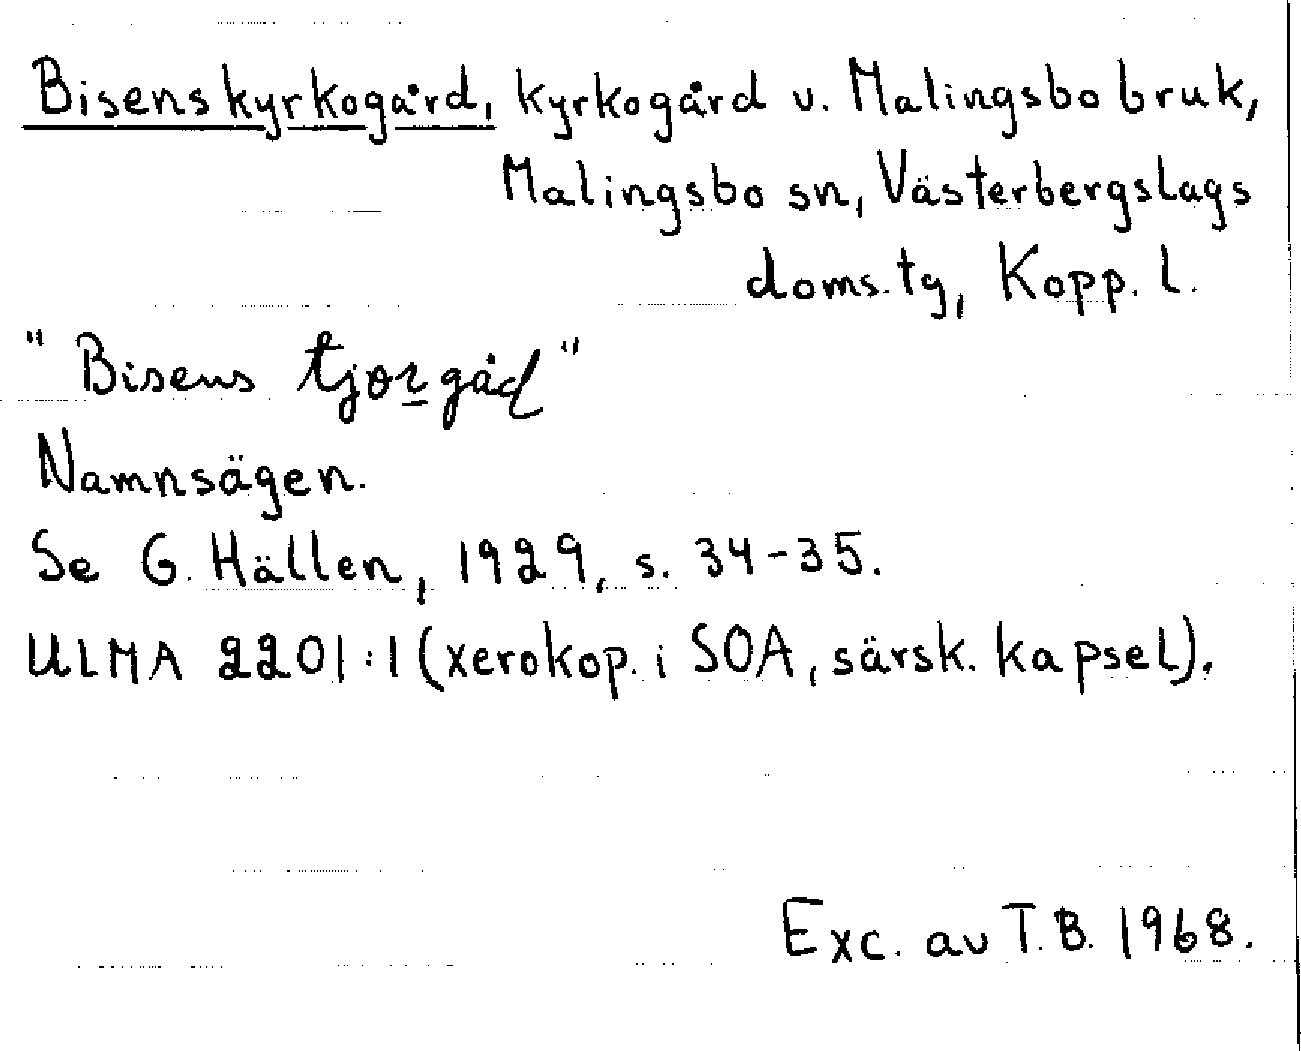 Bisens kyrkogård, kyrkogård v. Malingsbo bruk,
Malingsbo sn, Västerbergslags
doms.tg, Kopp. l.
"Bisens tjorgåd"
Namnsägen.
Se G. Hällen, 1929, s. 34-35.
ULMA 2201:1 (xerokop. i SOA, särsk. kapsel).
Exc. av T.B. 1968.